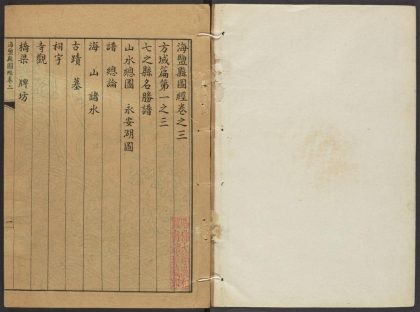 海鹽縣圖經卷之三
方域篇第一之三
七之縣名勝譜
山水總圖 永安湖圖
譜 總論
海 山 諸水
古蹟 墓
祠宇
寺觀
橋梁 牌坊
海鹽縣圖經卷三